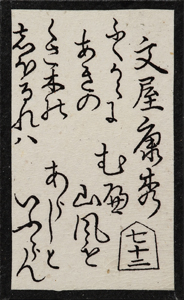 文屋康秀
七十二
ふくからに
あきの
くさ木の
しほるれハ
むべ
山風を
あらしと
いふらん